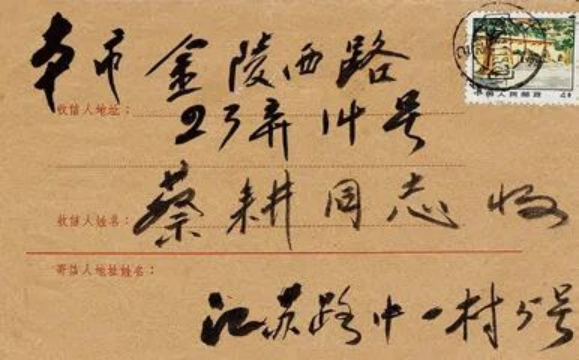 本市 金陵西路
收信人地址：
23弄14号
收信人姓名：
蔡耕同志 收
寄信人地址姓名：
江苏路中一村5号
中国人民邮政